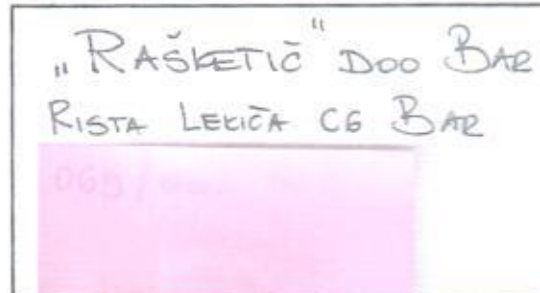 „RAŠKETIČ" DOO BAR
RISTA LEKIĆA C6 BAR
069/